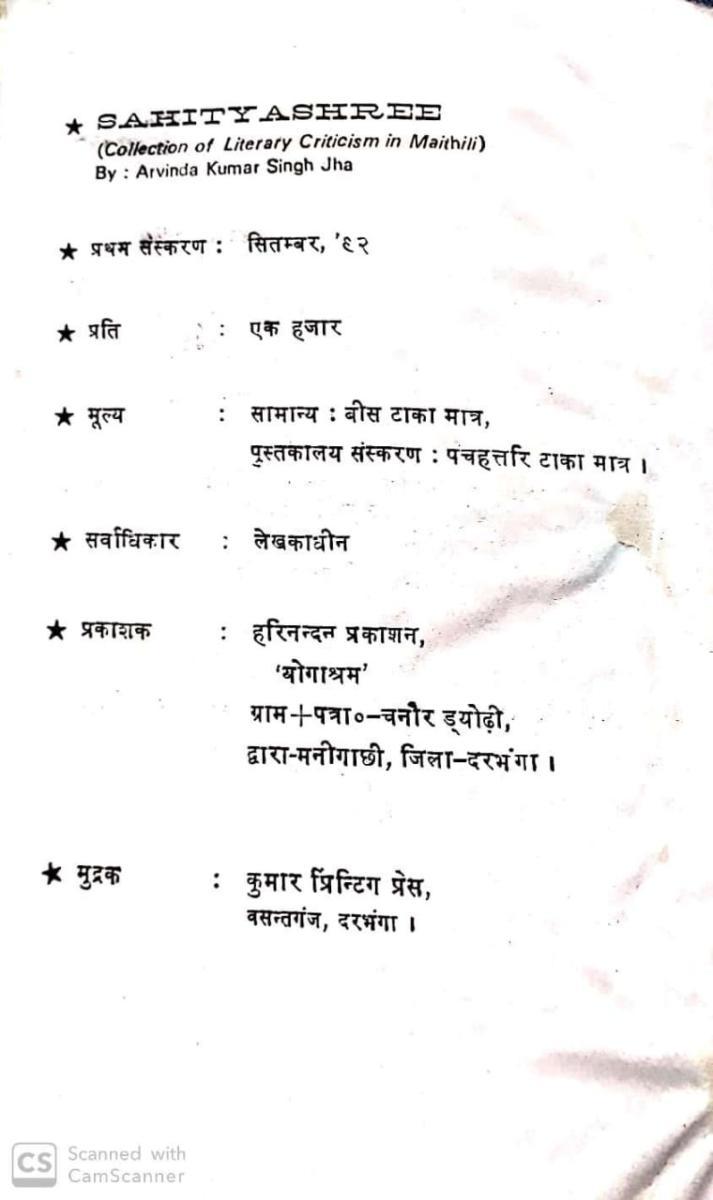 ★ SAHITYASHREE
(Collection of Literary Criticism in Maithili)
By : Arvinda Kumar Singh Jha
★ प्रथम संस्करण : सितम्बर, '९२
★ प्रति : एक हजार
★ मूल्य : सामान्य : बीस टाका मात्र,
पुस्तकालय संस्करण : पचहत्तरि टाका मात्र ।
★ सर्वाधिकार : लेखकाधीन
★ प्रकाशक : हरिनन्दन प्रकाशन,
'योगाश्रम'
ग्राम+पत्रा०-चनौर ड्योढ़ी,
द्वारा-मनीगाछी, जिला-दरभंगा ।
★ मुद्रक : कुमार प्रिन्टिग प्रेस,
वसन्तगंज, दरभंगा ।
CS Scanned with
CamScanner